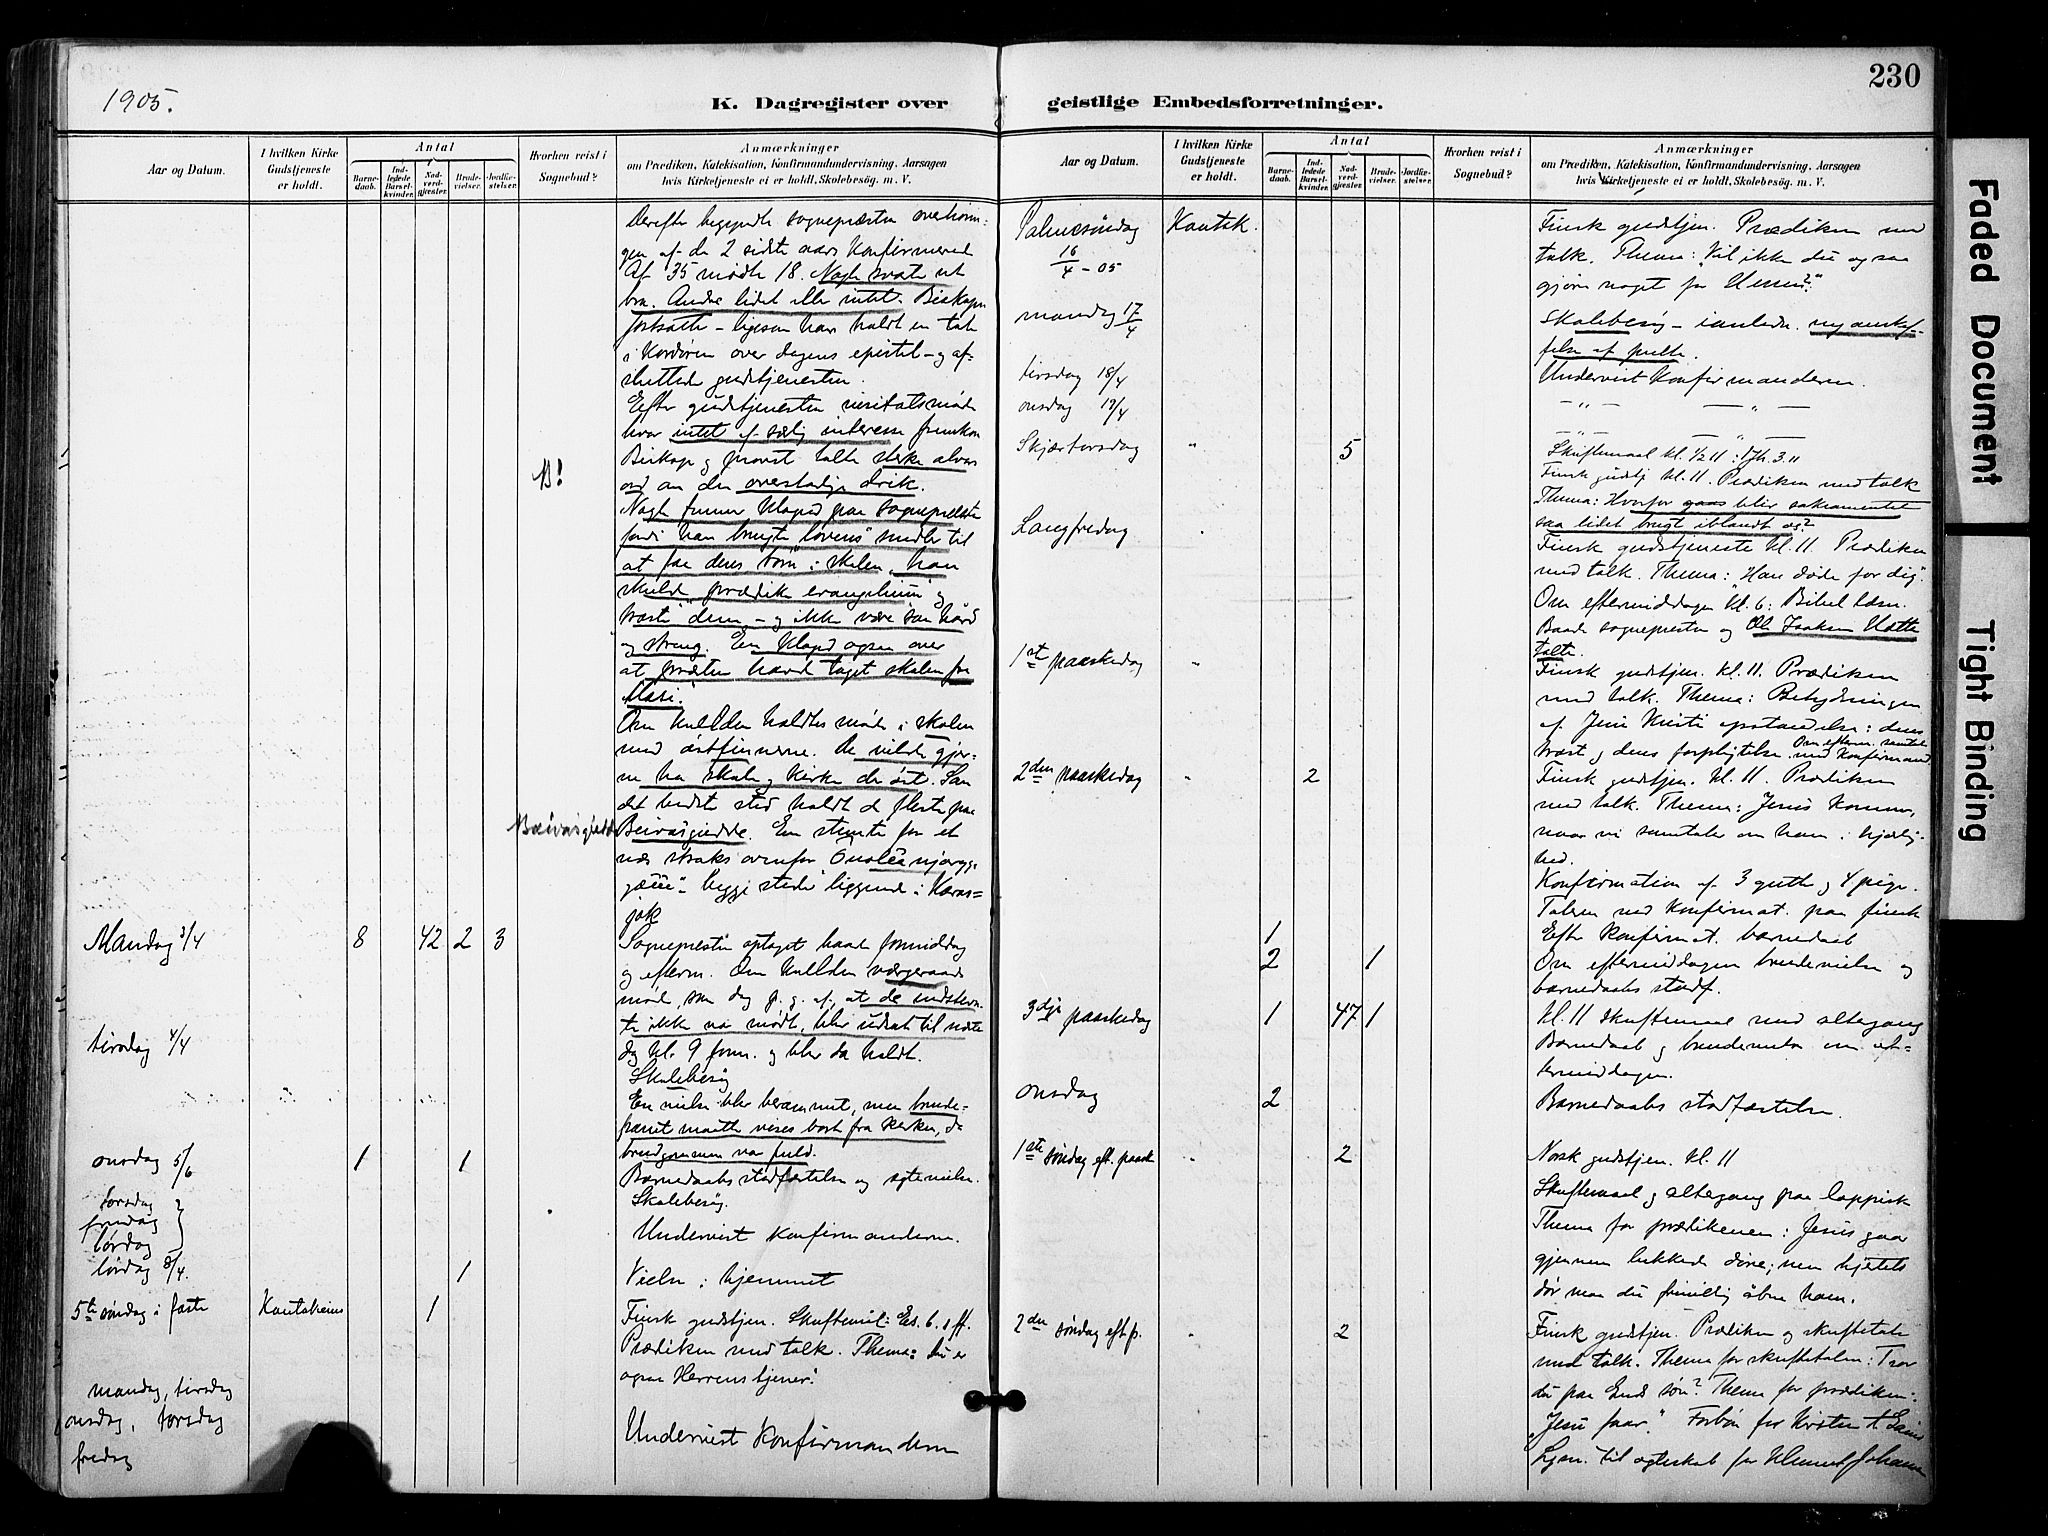 230
1905.
K. Dagregister over
geistlige Embedsforretninger.
Aar og Datum.
I hvilken Kirke Gudstjeneste er holdt.
Antal
Barnedaab.
Indledede Barselkvinder.
Nadverdgjester.
Brudevielser.
Jordfæstelser.
Hvorhen reist i Sognebud?
Anmærkninger
om Prædiken, Katekisation, Konfirmandundervisning, Aarsagen
hvis Kirketjeneste ei er holdt, Skolebesøg. m. V.
Derefter begyndte sognepræsten overhørin-
gen af de 2 sidste aars Konfirmerede
Af 35 mødte 18. Nogle svarte ret
bra. Andre lidet eller intet. Biskopen
fortsatte – ligesom han holdt en tale
i Kordøren over dagens epistel – og af-
sluttede gudstjenesten.
Efter gudstjenesten visitatsmøde
hvor intet af særlig interesse fremkom
Biskop og provst talte sterke alvors
N.B!
ord om den overstadige drik.
Nogle finner klaged paa sognepræsten
fordi han brugte lovens midler til
at faa deres børn i skolen, han
skulde prædike evangelium og
trøste dem – og ikke være saa haard
og streng. En klaged ogsaa over
at præsten havde taget skolen fra
Masi.
Om kvelden holdtes møde i skolen
med østfinnerne. De vilde gjer-
ne ha skole og kirke der øst. Som
det bedste sted holdt de fleste paa
Beivasgiedde
Beivasgiedde. En stemte for et
næs straks ovenfor
begge steder liggende i Karas-
jok
Mandag 3/4 8 42 2 3
Sognepresten optaget baade formiddag
og efterm. Om kvelden værgeraads
møde, som dog p. g. af, at de indstevn-
te ikke var mødt, blev udsat til næste
tirsdag 4/4
dag kl. 9 form. og blev da holdt.
Skolebesøg
En vielse blev berammet, men brude-
parret maatte vises bort fra kirken, da
brudgommen var fuld.
onsdag 5/6 1 1
Barnedaabs stadfæstelse og egtevielse.
Skolebesøg.
torsdag
fredag
lørdag
Undervist konfirmanderne.
lørdag 8/4. 1
Vielse i hjemmet
5te søndag i faste Kautokeino 1
Finsk gudstjen. Skriftemål: Es. 6. 1 ff.
Prædiken med tolk. Thema: Du er
ogsaa Herrens tjener!
mandag, tirsdag
onsdag, torsdag
fredag
Undervist Konfirmanderne
Aar og Datum.
I hvilken Kirke Gudstjeneste er holdt.
Antal
Barnedaab.
Indledede Barselkvinder.
Nadverdgjester.
Brudevielser.
Jordfæstelser.
Hvorhen reist i Sognebud?
Anmærkninger
om Prædiken, Katekisation, Konfirmandundervisning, Aarsagen
hvis Kirketjeneste ei er holdt, Skolebesøg. m. V.
Palmesøndag 16/4 – 05 Kautok.
Finsk gudstjen. Prædiken med
tolk. Thema: "Vil ikke du og saa
gjøre noget for Herren?"
mandag 17/4
Skolebesøg – ianledn. nyanskaf-
felse af pulte.
tirsdag 18/4
Undervist Konfirmanderne.
onsdag 19/4
– " – – " –
– " – – " –
Skjærtorsdag " 5
Skriftemaal kl. 1/2 11: Joh. 3.11
Finsk gudstj kl. 11. Prædiken med tolk
Thema: Hvorfor blir sakramentet
saa lidet brugt iblandt os?
Langfredag "
Finsk gudstjeneste kl. 11. Prædiken
med tolk. Thema: "Han døde for dig".
Om eftermiddagen kl. 6: Bibellæsn.
Baade sognepresten og Ole Isaksen Hætta
talte.
1ste paaskedag "
Finsk gudstjen. kl. 11. Prædiken
med tolk. Thema: Betydningen
af Jesu Kristi opstandelse: dens
trøst og dens forpligtelse. Om efterm. samtale med Konfirmand
2den paaskedag " 2
Finsk gudstjen. kl. 11. Prædiken
med tolk. Thema: Jesus kommer,
naar vi samtale om ham i kjærlig-
hed.
Konfirmation af 3 gutter og 4 piger.
Talen med Konfirmat. paa finsk
1
Efter Konfirmat. barnedaab
2 1
Om eftermiddagen brudevielse og
barnedaabs stadf.
3dje paaskedag 1 47 1
kl. 11 skriftemaal med altergang
Barnedaab og brudevielse om ef-
termiddagen.
onsdag 2
Barnedaabs stadfæstelse.
1ste søndag eft. paaske " 2
Norsk gudstjen. kl. 11
Skriftemaal og altergang paa lappisk
Thema for prædikenen: Jesus gaar
gjennem lukkede døre; men hjertets
dør maa du frivillig åbne ham.
2den søndag eft p. " 2
Finsk gudstjen. Prædiken og skriftetale
med tolk. Thema for skriftetalen: Tror
du paa Guds søn? Thema for prædiken:
"Jesu faar". Forbøn for Kirsten
til egteskab for Klemet Johans
Faded Document
Tight Binding